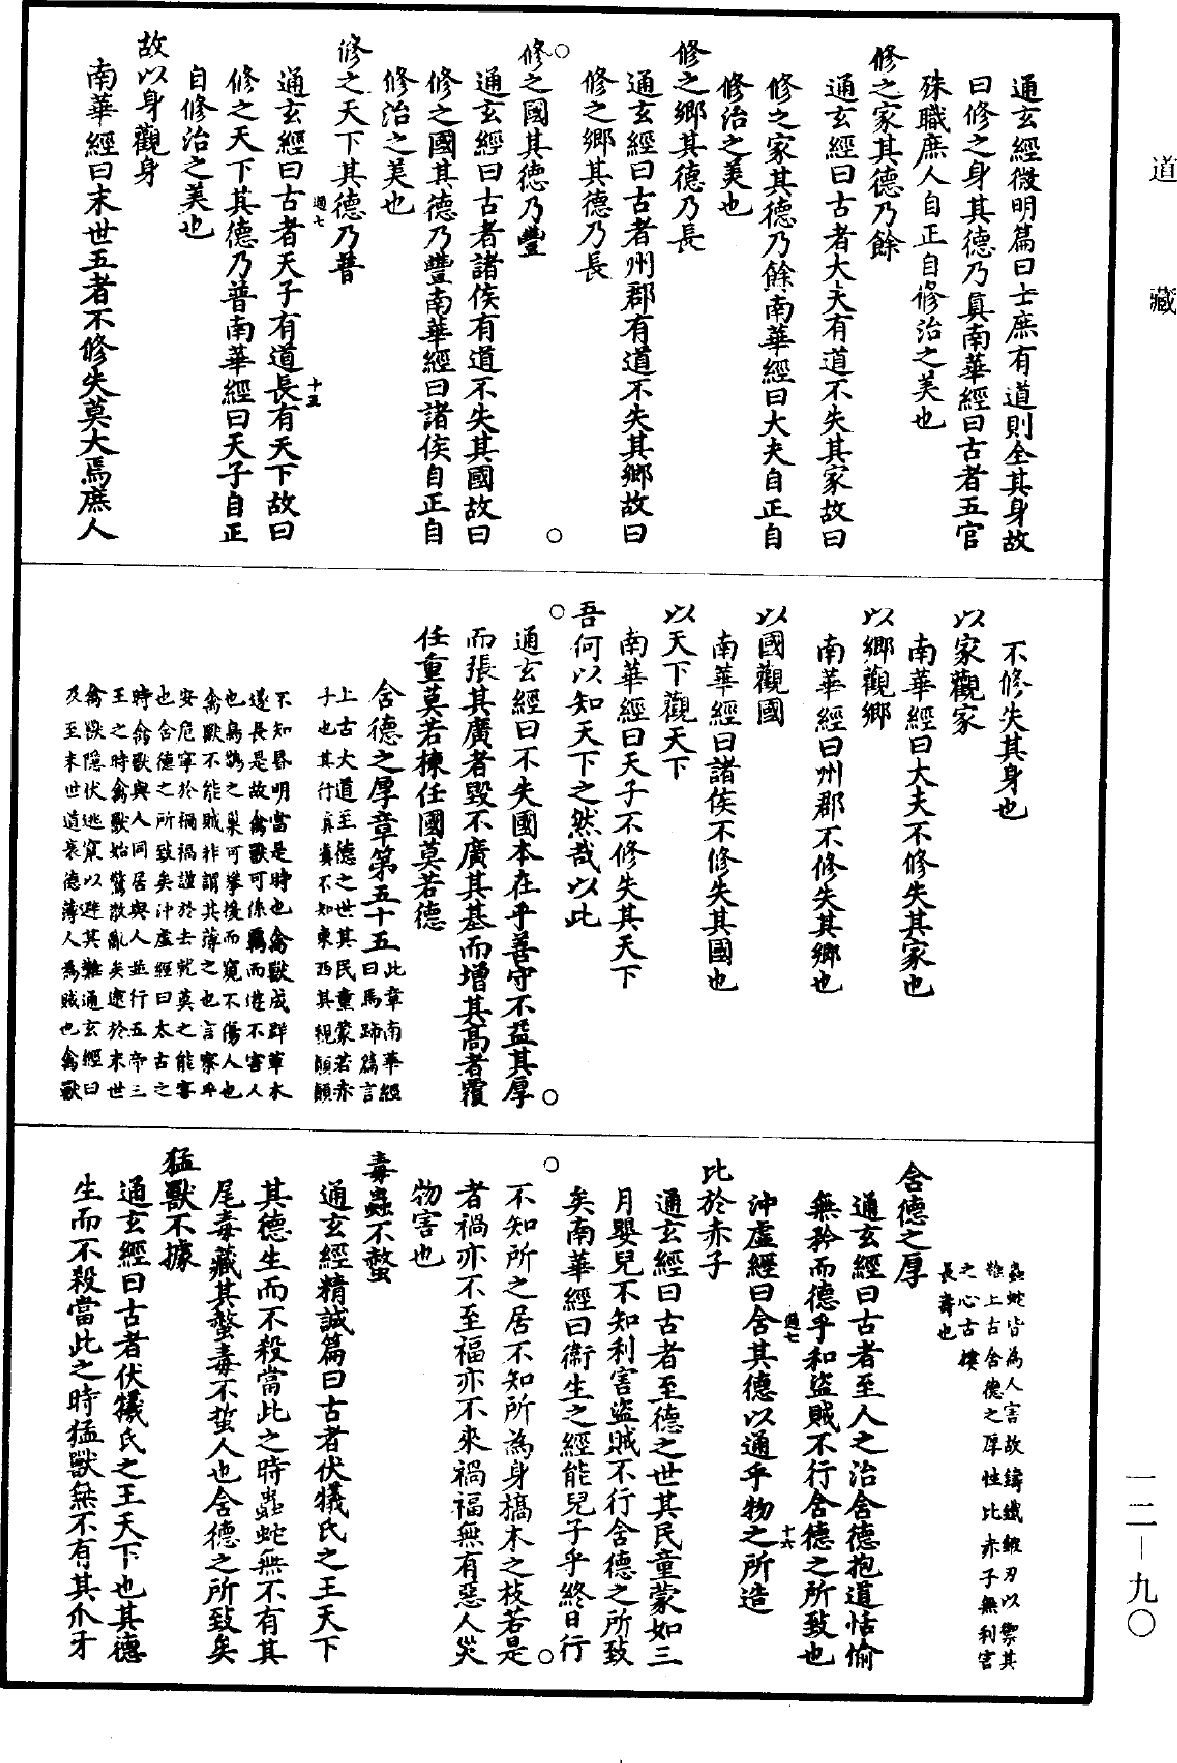 道藏
通玄經微明篇曰士庶有道則全其身故
曰修之身其德乃真南華經曰古者五官
殊職庶人自正自修治之美也
修之家其德乃餘
通玄經曰古者大夫有道不失其家故曰
修之家其德乃餘南華經曰大夫自正自
修治之美也
修之鄉其德乃長
通玄經曰古者州郡有道不失其鄉故曰
修之鄉其德乃長
修之國其德乃豐
通玄經曰古者諸侯有道不失其國故曰
修之國其德乃豐南華經曰諸侯自正自
修治之美也
修之天下其德乃普
過七
十五
通玄經曰古者天子有道長有天下故曰
修之天下其德乃普南華經曰天子自正
自修治之美也
故以身觀身
南華經曰末世五者不修失莫大焉庶人
不修失其身也
以家觀家
南華經曰大夫不修失其家也
以鄉觀鄉
南華經曰州郡不修失其鄉也
以國觀國
南華經曰諸侯不修失其國也
以天下觀天下
南華經曰天子不修失其天下
吾何以知天下之然哉以此
通玄經曰不失國本在乎善守不益其厚
而張其廣者毀不廣其基而增其高者覆
任重莫若棟任國莫若德
含德之厚章第五十五
此章南華經
曰馬蹄篇言
上古大道至德之世其民童蒙若赤
子也其行瞋瞋不知東西其視顛顛
不知昏明當是時也禽獸成群草木
遂長是故禽獸可係羈而遊不害人
也烏鵲之巢可攀援而窺不傷人也
禽獸不能賊非謂其薄之也言察乎
安危寧於禍福謹於去就莫之能害
也含德之所致矣沖虛經曰太古之
時禽獸與人同居與人並行五帝三
王之時禽獸始驚散亂矣逮於末世
禽獸隱伏逃竄以避其難通玄經曰
及至末世道衰德薄人為賊也禽獸
蟲蛇皆為人害故鑄鐵鍛刃以禦其
難上古含德之厚性比赤子無利害
之心古樸
長壽也
含德之厚
通玄經曰古者至人之治含德抱道恬愉
無矜而德乎和盜賊不行含德之所致也
過七
十六
沖虛經曰含其德以通乎物之所造
比於赤子
通玄經曰古者至德之世其民童蒙如三
月嬰兒不知利害盜賊不行含德之所致
矣南華經曰衛生之經能兒子乎終日行
不知所之居不知所為身槁木之枝若是
者禍亦不至福亦不來禍福無有惡人災
物害也
毒蟲不螫
通玄經精誠篇曰古者伏犧氏之王天下
其德生而不殺當此之時蟲蛇無不有其
尾毒藏其螫毒不蜇人也含德之所致矣
猛獸不據
通玄經曰古者伏犧氏之王天下也其德
生而不殺當此之時猛獸無不有其爪牙
一二—九〇